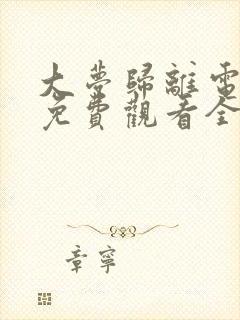 大夢歸離電
免費觀看全
章寧